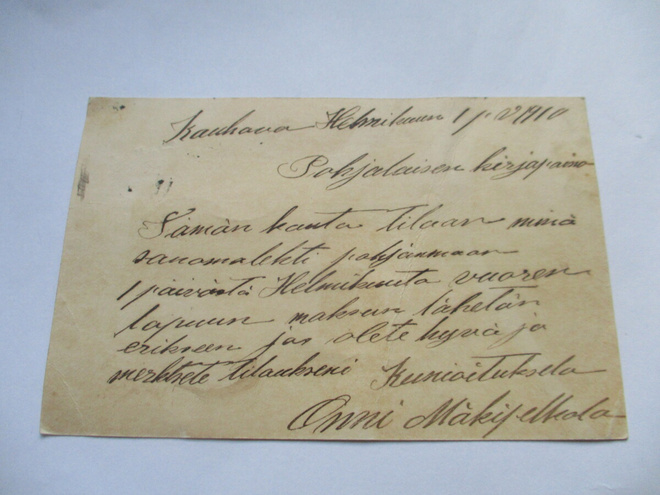 Kauhava Helmikuun 1 p:vä 1910
Pohjalaisen kirjapaino
Tämän kauta tilaan minä
sanomalehti pohjanmaan
1 päivästä Helmikuuta vuoren
lopuun maksun lähetän
erikseen jos olete hyvä ja
merkitsete tilaukseni Kunioituksela
Onni Mäkipelkola